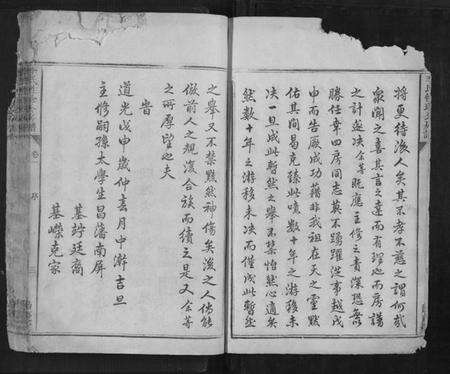 將更待後人矣其不孝不慈之謂何哉
众聞之喜其言之遠而有理也而房議
之計遂决余等既應主修之責深恐無
勝任幸四房同志莫不踴躍從事越戊
申而告厥成功藉非我祖在天之靈默
佑其間曷克臻此噫數十年之游移未
决一旦成此暫然之舉不禁怡然心適矣
然數十年之游移未决而僅成此暫然
之舉又不禁黯然神傷矣後之人倘能
倣前人之規復合族而續之是又余等
之所厚望也夫
旹
道光戊申歲仲玄月中澣吉旦
主修嗣孫太學生昌藩南屏
基𥪡廷裔
基嶸克家
卷 序